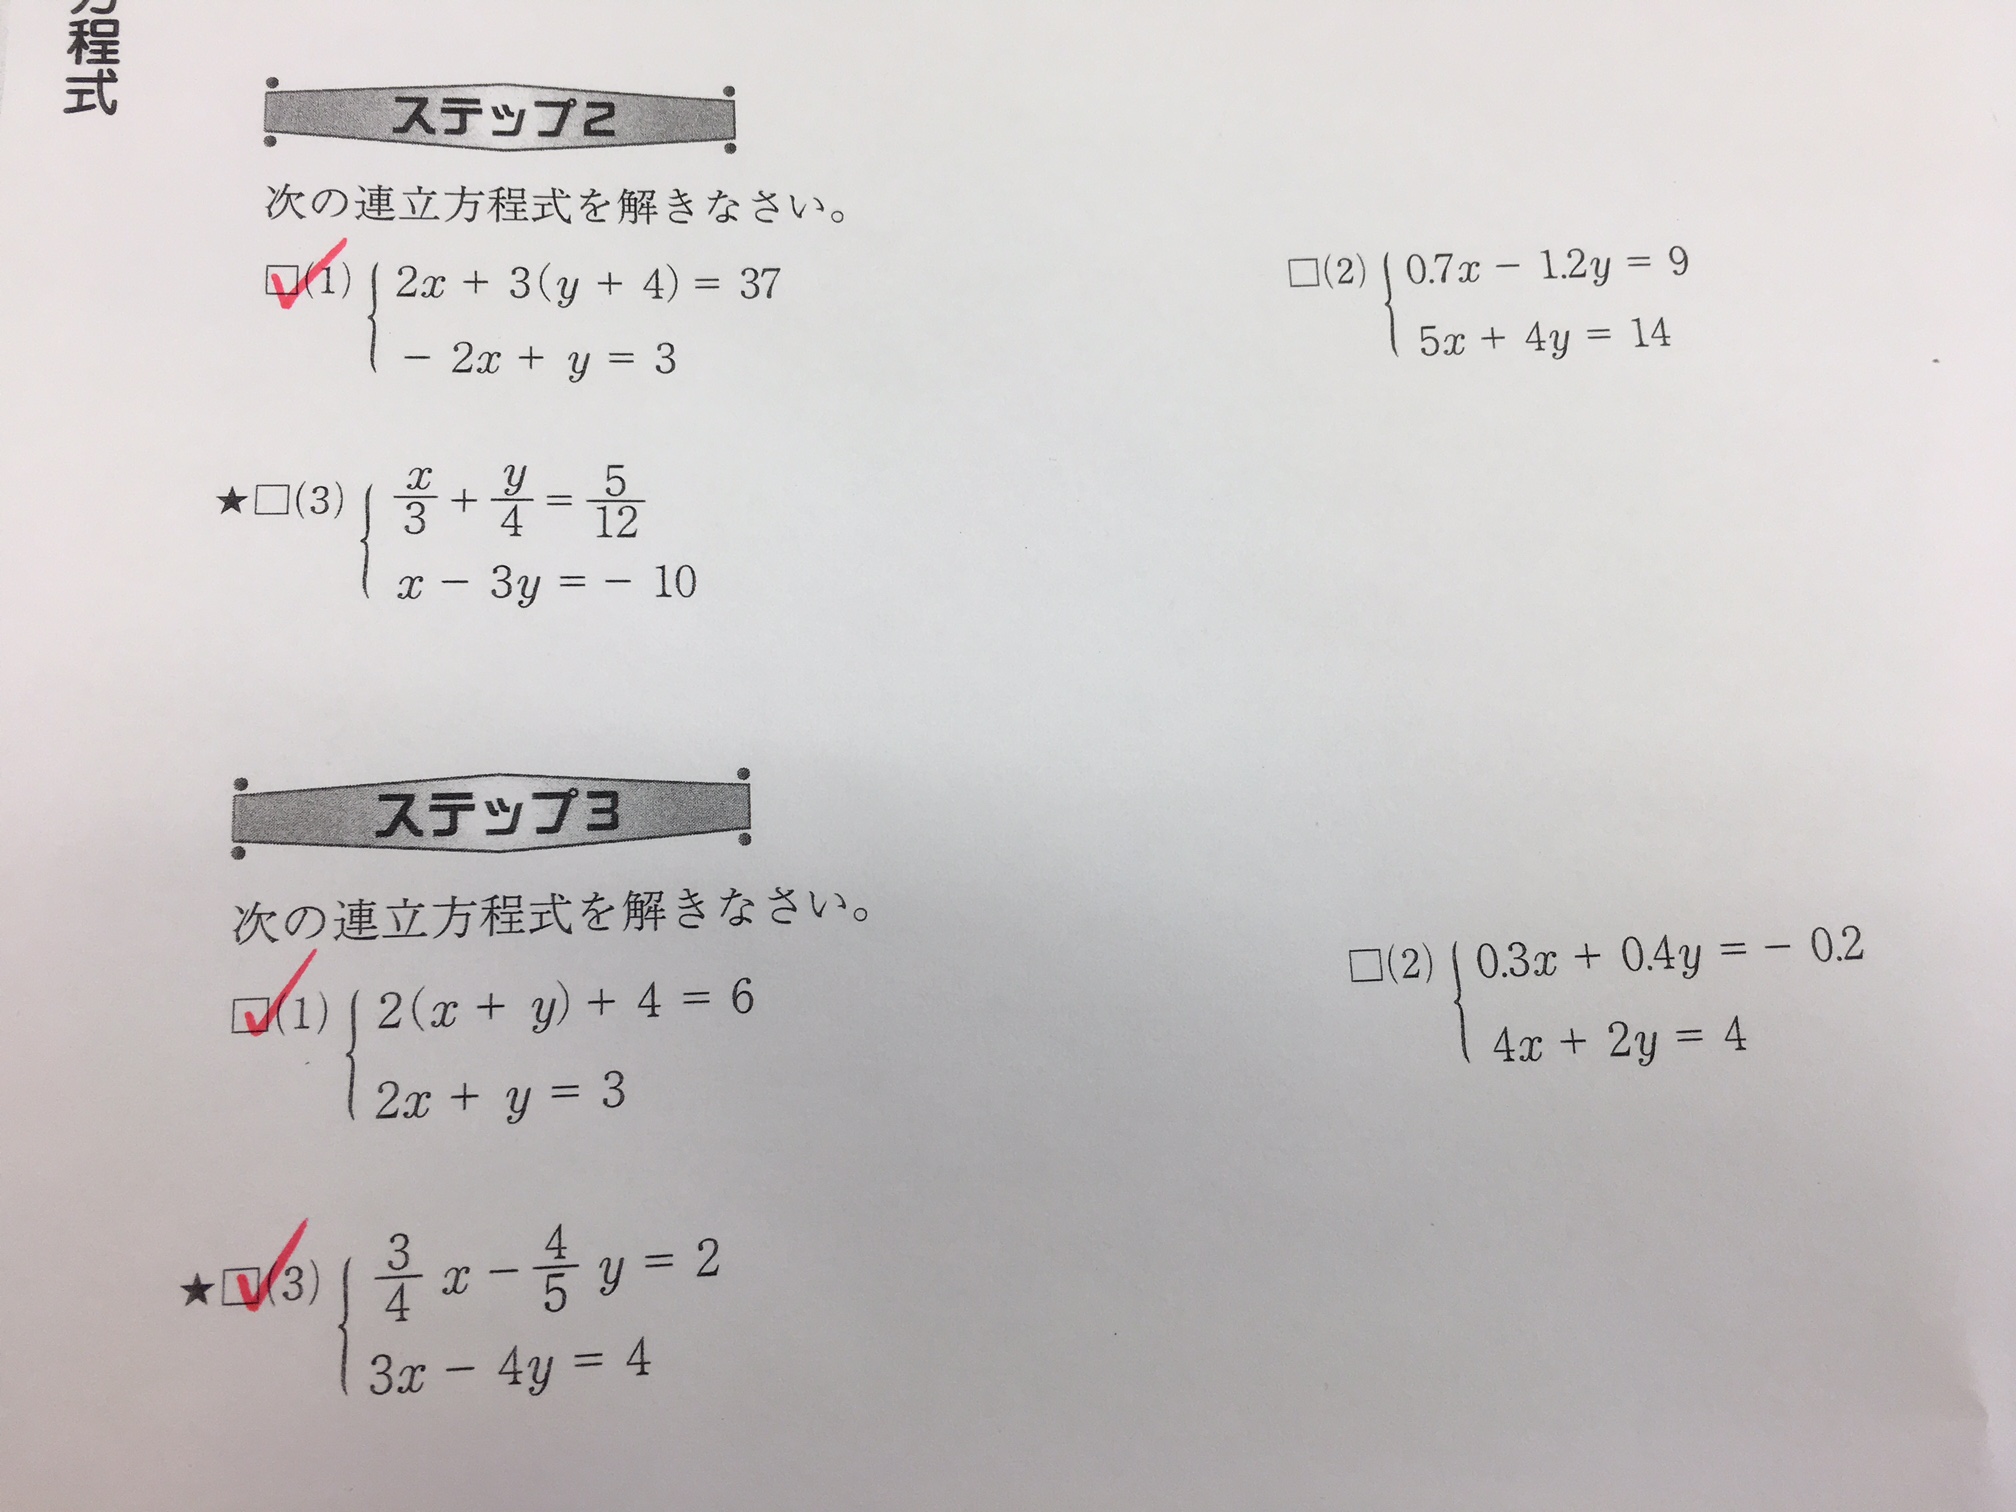 方程式
ステップ2
次の連立方程式を解きなさい。
□(1) { 2x + 3(y + 4) = 37
− 2x + y = 3
□(2) { 0.7x − 1.2y = 9
5x + 4y = 14
★□(3) { x/3 + y/4 = 5/12
x − 3y = − 10
ステップ3
次の連立方程式を解きなさい。
□(1) { 2(x + y) + 4 = 6
2x + y = 3
□(2) { 0.3x + 0.4y = − 0.2
4x + 2y = 4
★□(3) { 3/4 x − 4/5 y = 2
3x − 4y = 4